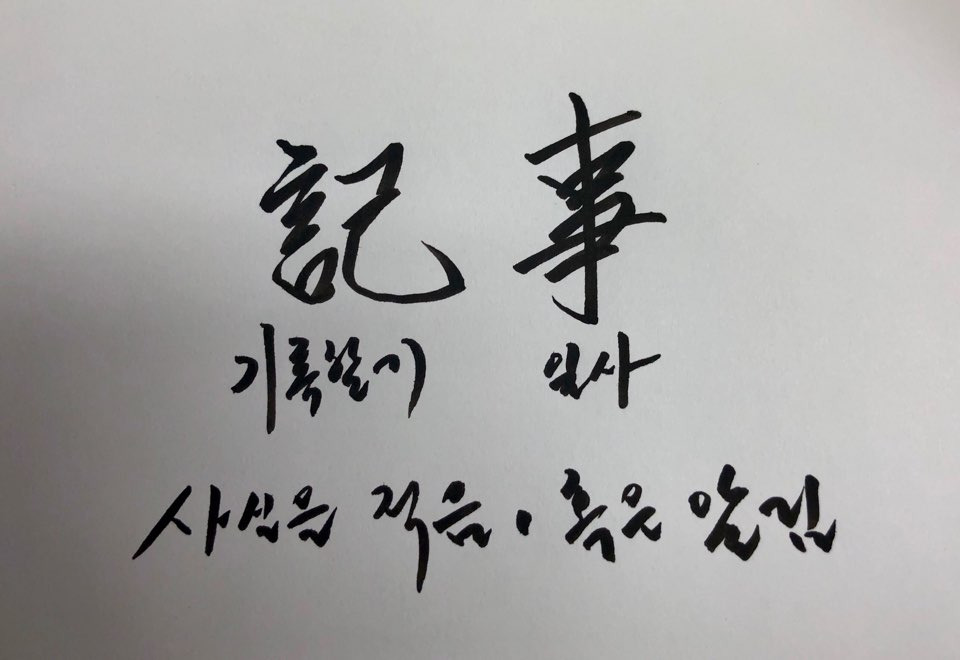 記 事
기록할 기 일 사
사실을 적음, 혹은 알림